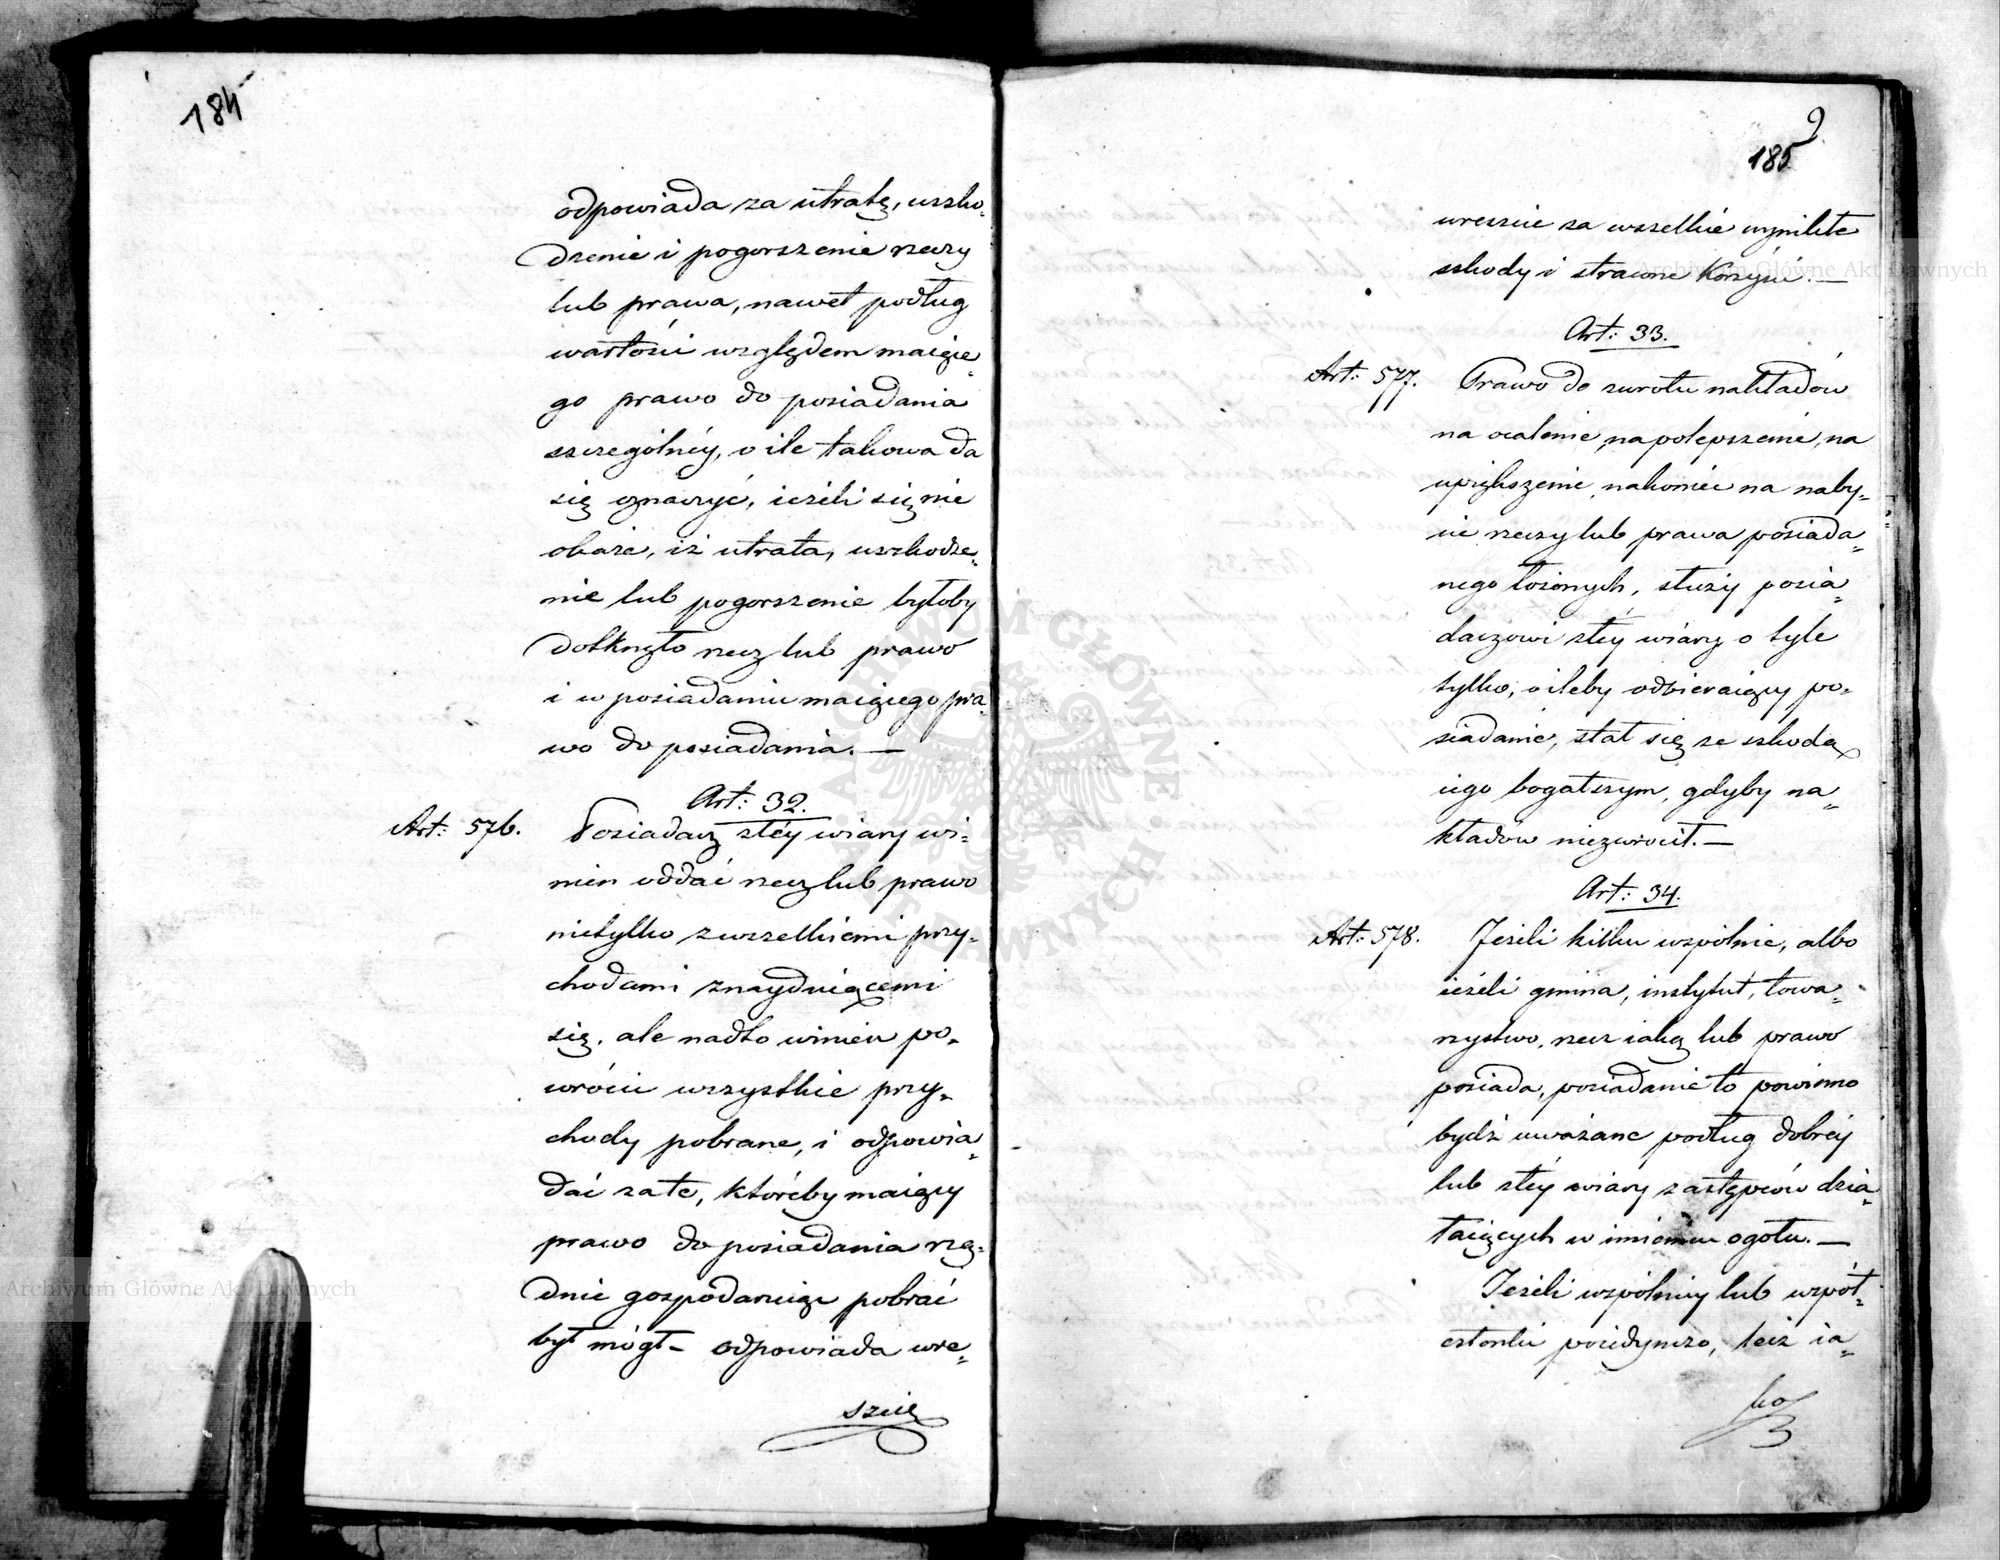 184
odpowiada za utratę, uszko-
dzenie i pogorszenie rzeczy
lub prawa, nawet podług
wartości względem maiące=
go prawo do posiadania
szczególnéy, o ile takowa da
się oznaczyć, ieżeli się nie
okaże, iż utrata, uszkodze=
nie lub pogorszenie byłoby
dotknęło rzecz lub prawo
i w posiadaniu maiącego pra=
wo do posiadania. —
Art: 32.
Art: 576.
Posiadacz złéy wiary wi=
nien oddać rzecz lub prawo
nietylko z wszelkiemi przy=
chodami znayduiącemi
się, ale nadto winien po=
wrócić wszystkie przy=
chody pobrane, i odpowia=
dać za te, któréby maiący
prawo do posiadania rzą=
dnie gospodaruiąc pobrać
był mógł – odpowiada wre=
szcie
9
185
wreszcie za wszelkie wynikłe
szkody i stracone korzyści. —
Art: 33.
Art: 577.
Prawo do zwrotu nakładów
na ocalenie, na polepszenie, na
upiększenie, nakoniec na naby=
cie rzeczy lub prawa posiada=
nego łożonych, służy posia=
daczowi złéy wiary o tyle
tylko, o ileby odbieraiący po=
siadanie, stał się ze szkodą
iego bogatszym, gdyby na=
kładów niezwrócił. —
Art: 34.
Art: 578.
Jeżeli kilku wspólnie, albo
ieżeli gmina, instytut, towa=
rzystwo, rzecz iaką lub prawo
posiada, posiadanie to powinno
bydź uważane podług dobréy
lub złéy wiary zastępców dzia=
łaiących w imieniu ogółu. —
Jeżeli wspólnicy lub współ=
członki poiedynczo, też ia=
ko
Archiwum Główne Akt Dawnych
Archiwum Główne Akt Dawnych
ARCHIWUM GŁÓWNE AKT DAWNYCH